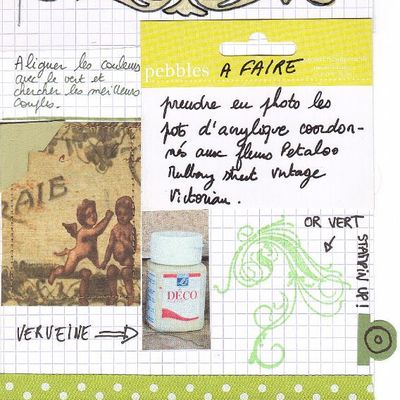 Aligner les couleurs
avec le vert et
chercher les meilleurs
couples.
pebbles
A FAIRE
prendre en photo les
pots d'acrylique coordon-
nés aux fleurs Petaloo
Mulberry street vintage
Victorian.
RAIE
OR VERT
STAMPIN UP!
DÉCO
VERVEINE